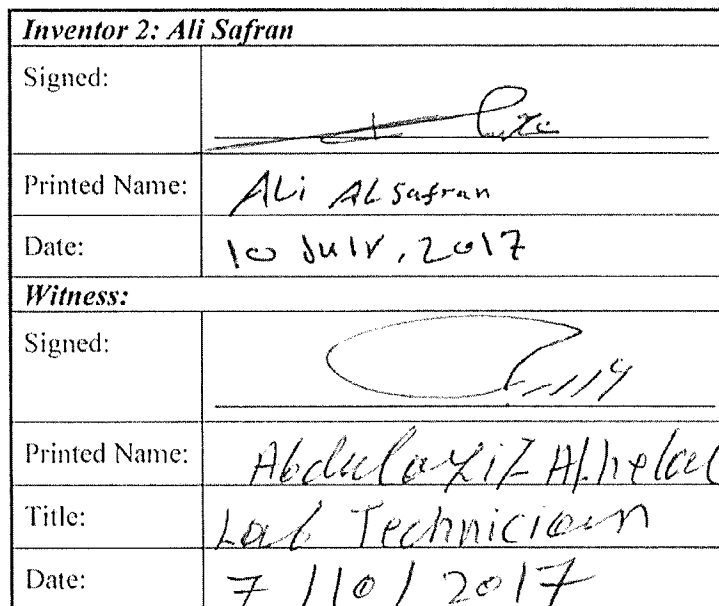 Inventor 2: Ali Safran
Signed:
Printed Name: ALi ALSafran
Date: 10 July, 2017
Witness:
Signed:
Printed Name: Abdulaziz Alhelal
Title: Lab Technician
Date: 7/10/2017